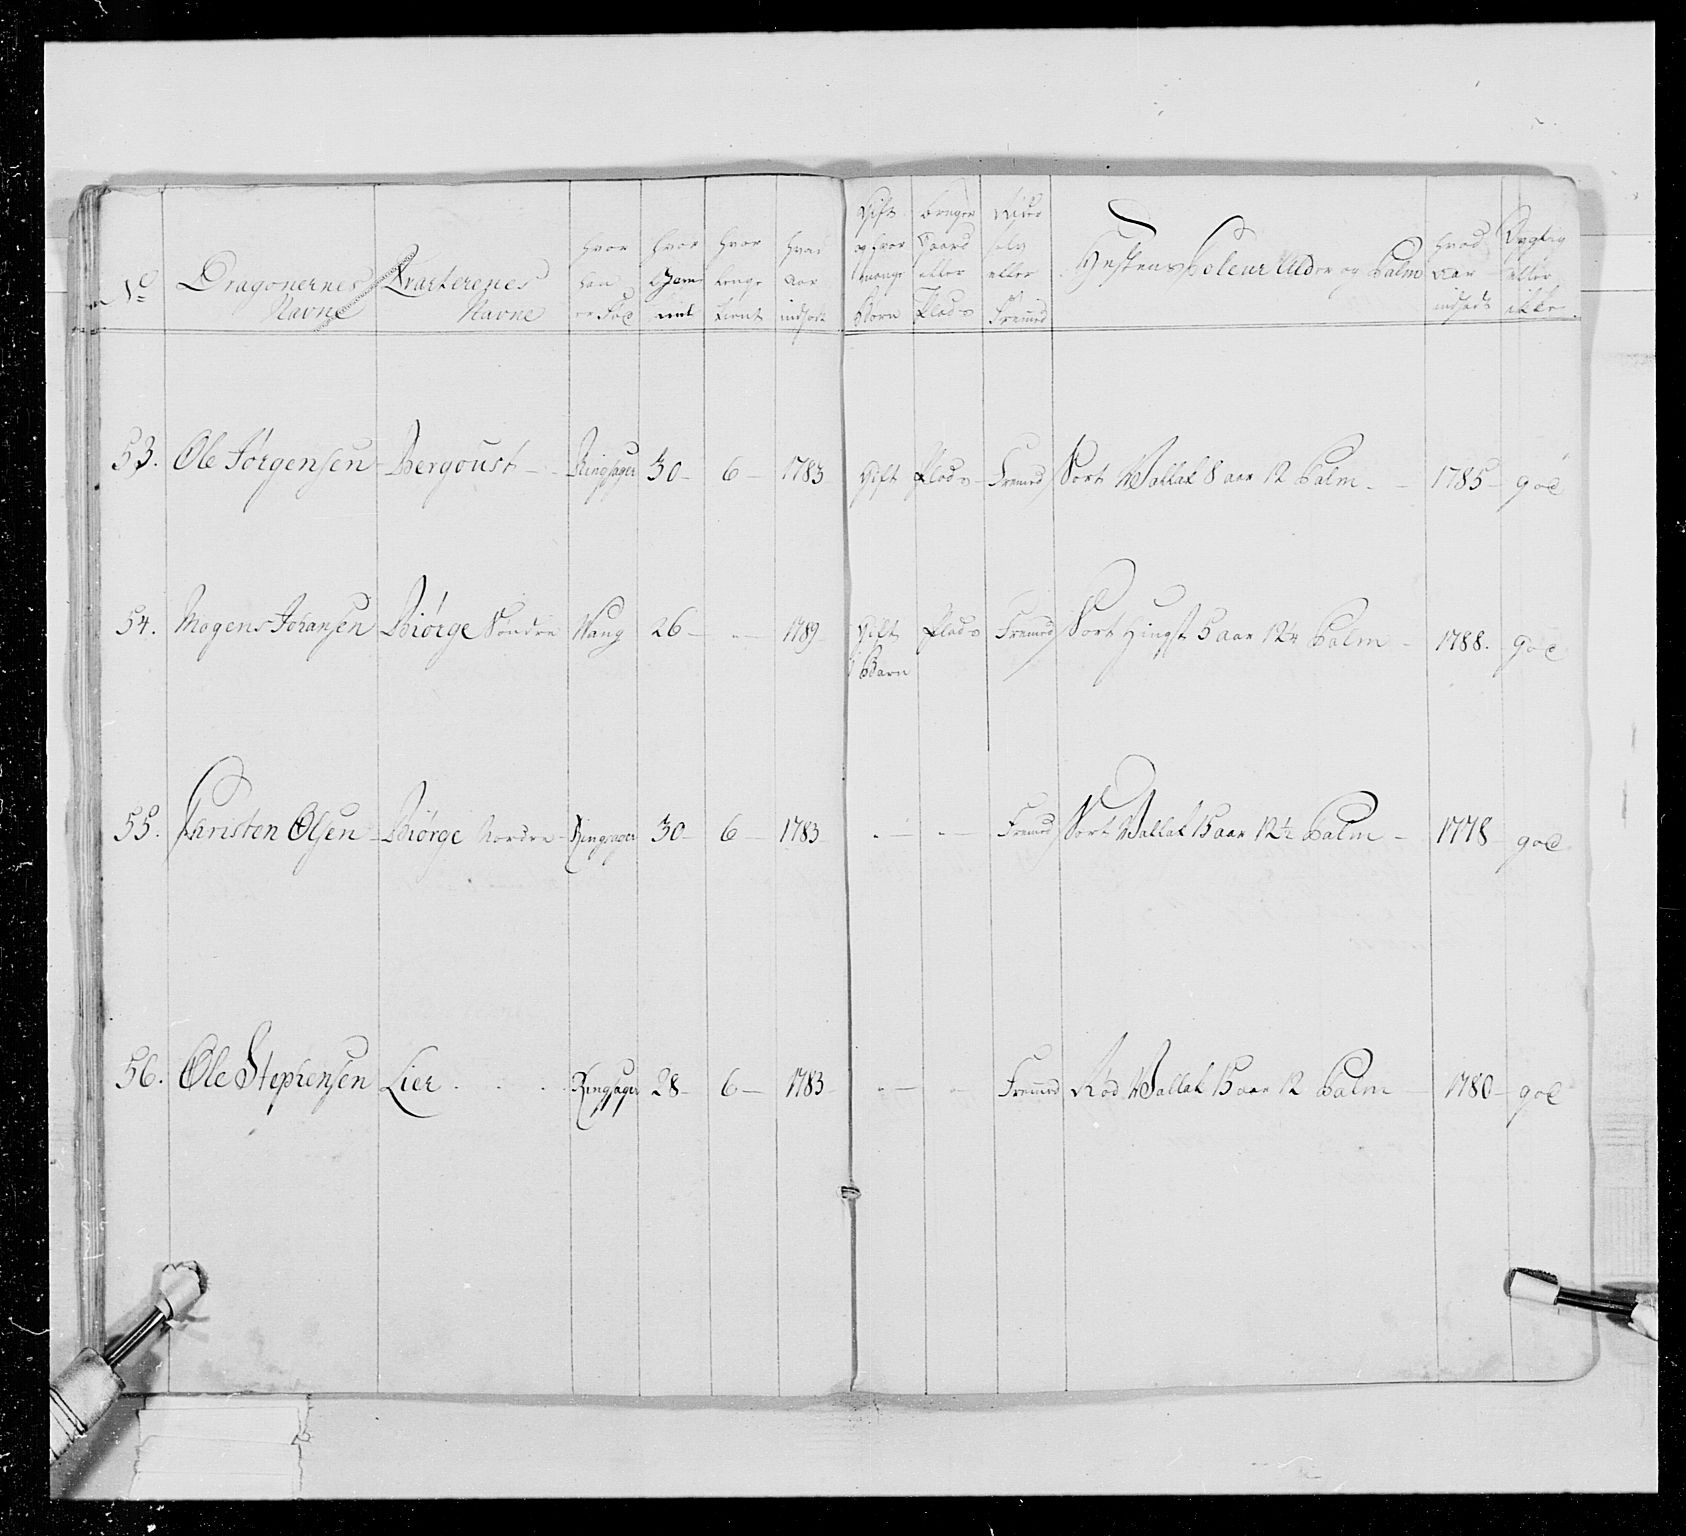 No Dragonernes Navne Qvarterenes Navne hvor han er Fød hvor Gammel hvor lenge tient hvad Aar indsat Gift og hvor mange Børn bruger Gaard eller Plads Rider selv eller Fremed Hestens Coleur Alder og Palm hvad Aar indsadt Dygtig eller ikke
53. Ole Jørgensen Bergoust Ringsager 30 6 1783 Gift Plads Fremed Sort Vallak 8 aar 12 Palm 1785 god
54. Mogens Johansen Biørge Søndre Vang 26 — 1789 Gift 1 Barn Plads Fremed Sort Hingst 5 aar 12¼ Palm 1788. god
55. Christen Olsen Biørge Nordre Ringsager 30 6 1783 — — Fremed Sort Vallak 15 aar 12½ Palm 1778 god
56. Ole Stephensen Lier Ringsager 28 6 1783 — — Fremed Rød Vallak 15 aar 12 Palm 1780 god